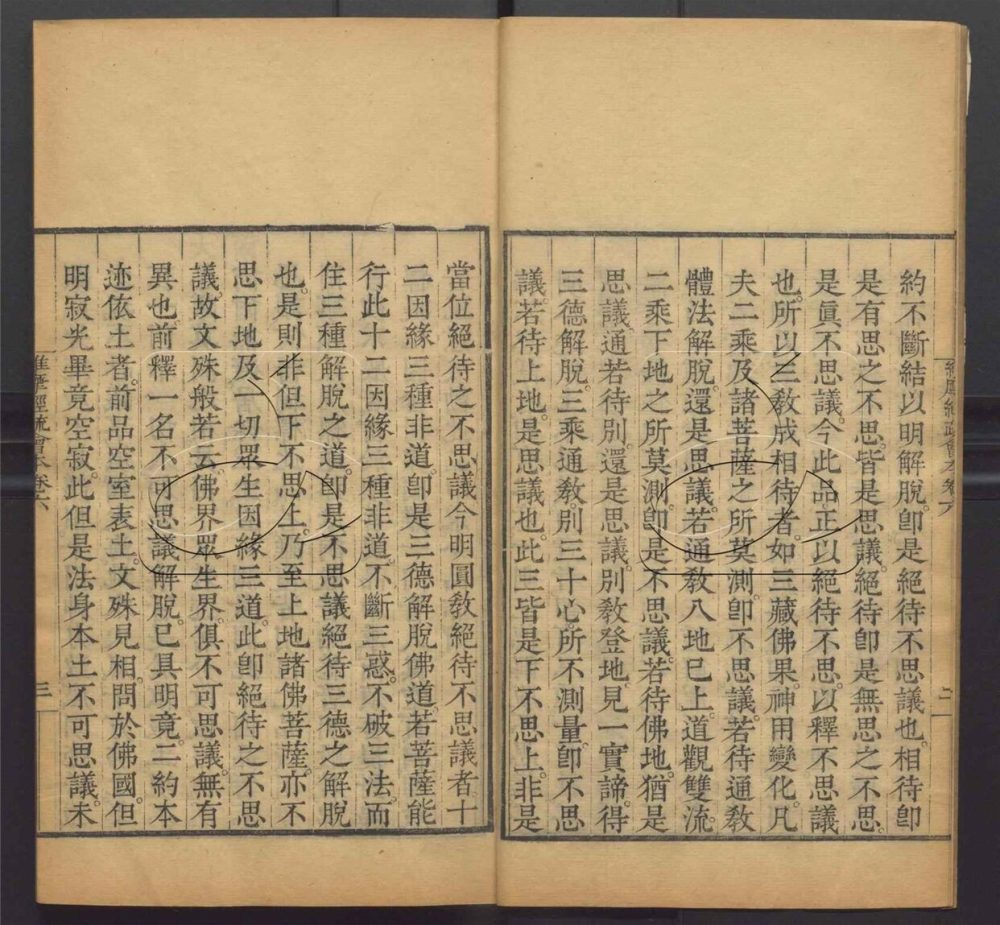 約不斷結以明解脫。卽是絕待不思議也。相待卽
是有思之不思。皆是思議。絕待卽是無思之不思。
是眞不思議。今此品正以絕待不思。以釋不思議
也。所以三教成相待者。如三藏佛果。神用變化。凡
夫二乘及諸菩薩之所莫測。卽不思議。若待通教
體法解脫。還是思議。若通教八地已上。道觀雙流。
二乘下地之所莫測。卽是不思議。若待佛地。猶是
思議。通若待別。還是思議。別教登地。見一實諦。得
三德解脫。三乘通教。別三十心所不測量。卽不思
議。若待上地。是思議也。此三皆是下不思上。非是
當位絕待之不思議。今明圓教絕待不思議者。十
二因緣三種非道。卽是三德解脫佛道。若菩薩能
行此十二因緣三種非道。不斷三惑。不破三法。而
住三種解脫之道。卽是不思議絕待三德之解脫
也。是則非但下不思上。乃至上地諸佛菩薩。亦不
思下地及一切眾生因緣三道。此卽絕待之不思
議。故文殊般若云。佛界眾生界。俱不可思議。無有
異也。前釋一名不可思議解脫。已具明竟。二約本
迹依土者。前品空室表土。文殊見相。問於佛國。但
明寂光畢竟空寂。此但是法身本土不可思議。未
維摩經疏會本卷六
三
二